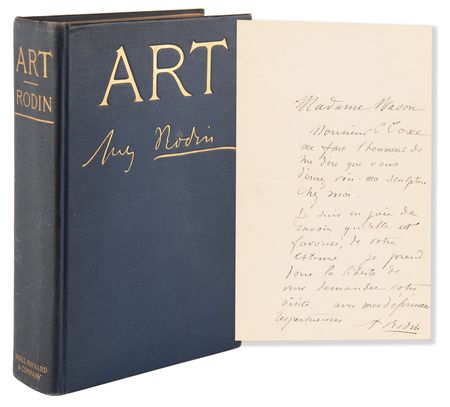 ART
RODIN
SMALL MAYNARD
& COMPANY
ART
by Rodin
Madame Mason
Monsieur C. Coxe
me fait l'honneur de
me dire que vous
voir ma sculpture
chez moi.
Je suis en joie de
savoir qu'elle est
favorisée de votre
estime. Je prend
donc la liberté de
vous demander votre
visite avec mes déférences
respectueuses A Rodin